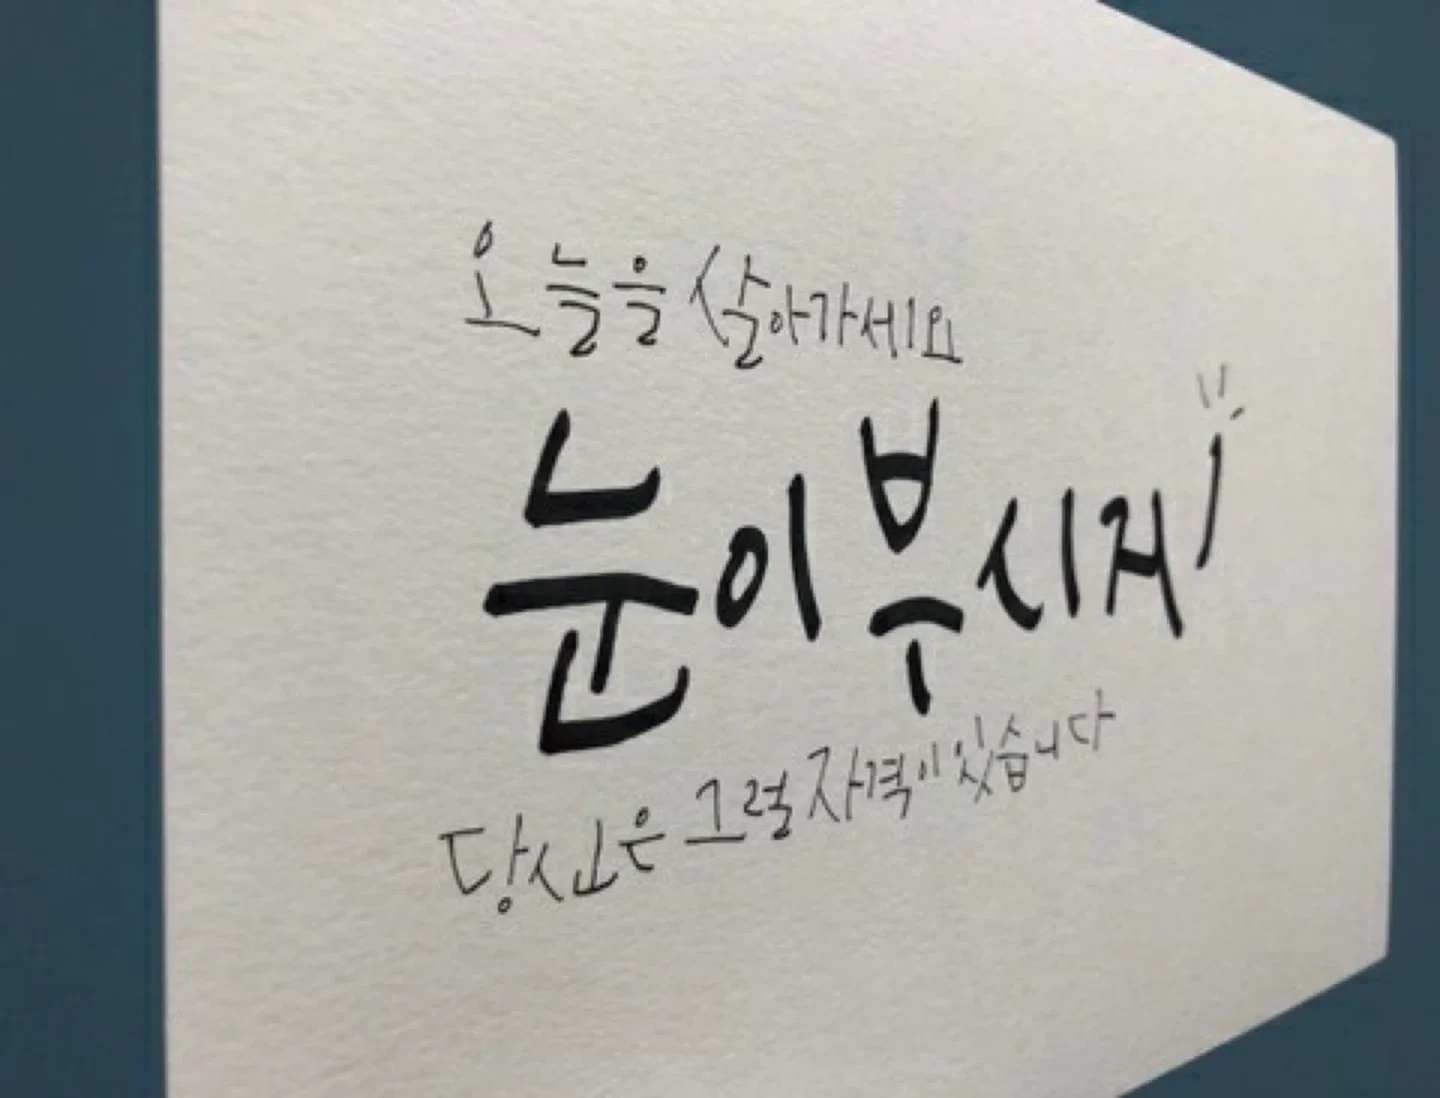 오늘을 살아가세요
눈이부시게
당신은 그럴 자격이 있습니다